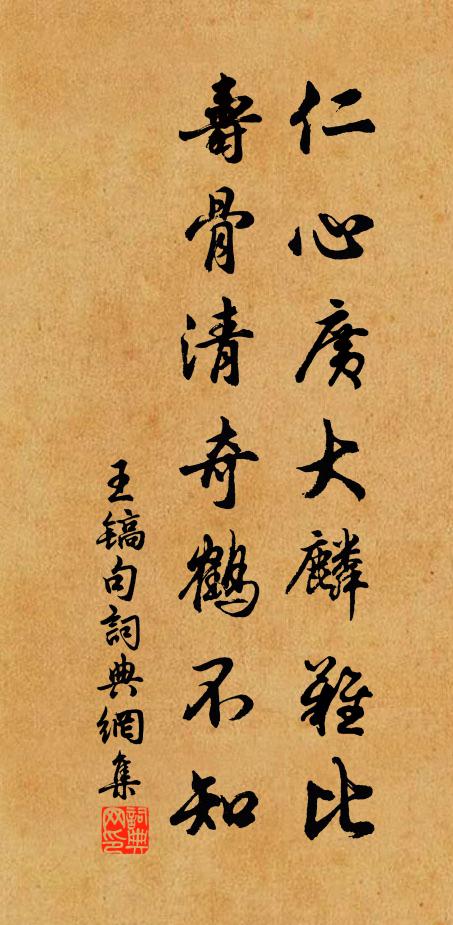 仁心廣大麟難比
壽骨清奇鶴不知
王鎬句詞典網集
詞典网印